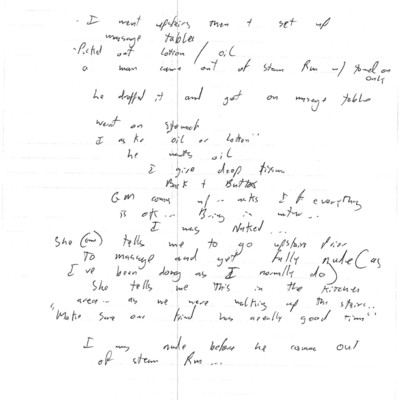 - I went upstairs then + set up
massage tables
- Picked out lotion / oil
a man came out of steam Rm w/ towel on
only
he dropped it and got on massage table
went on stomach
I ask oil or lotion..
he wants oil
I give deep tissue
Back + Buttox
GM comes w/ .. asks If everything
is ok.. Bring in water..
I was Naked...
She (GM) tells me to go upstairs Prior
To massage and get fully nude (as
I've been doing as I normally do)
She tells me this in the kitchen
area.. as we were walking up the stairs..
"Make sure our friend has a really good time"
I was nude before he comes out
of steam Rm...